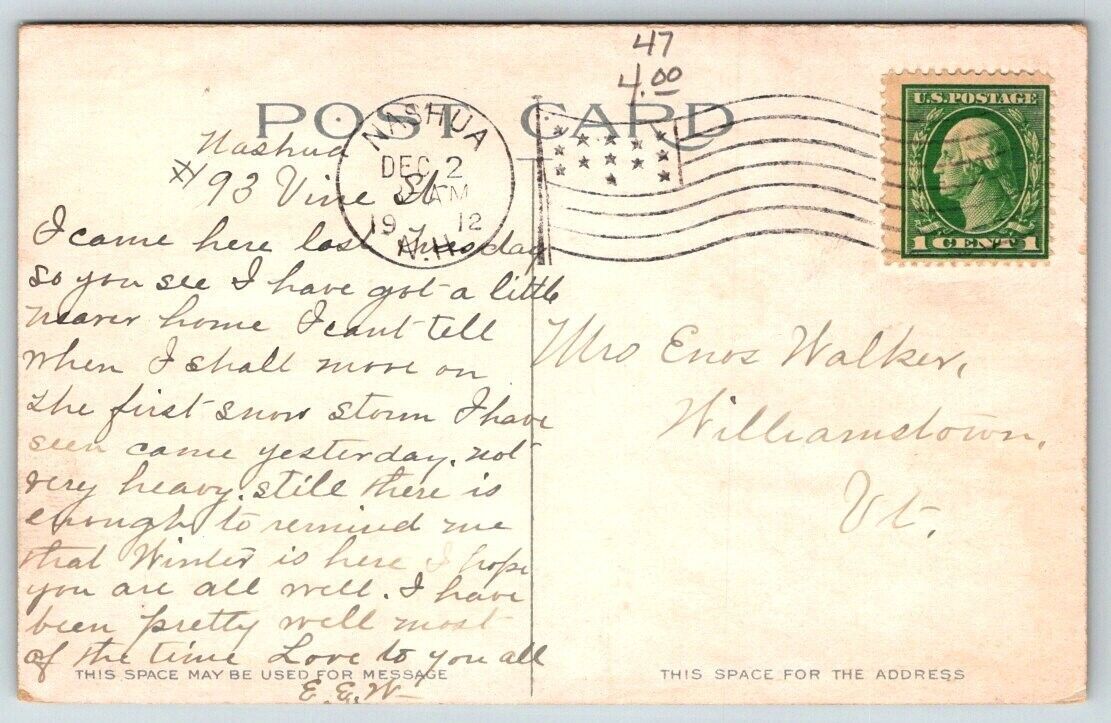 47
4.00
POST CARD
U.S. POSTAGE
1 CENT 1
NASHUA
DEC 2
AM
19 12
N.H.
Nashua
# 93 Vine St
I came here last Tuesday
so you see I have got a little
nearer home I cant tell
when I shall move on
the first snow storm I have
seen came yesterday. not
very heavy. still there is
enough to remind me
that Winter is here I hope
you are all well. I have
been pretty well most
of the time Love to you all
E. E. W
THIS SPACE MAY BE USED FOR MESSAGE
Mrs Enos Walker,
Williamstown,
Vt.
THIS SPACE FOR THE ADDRESS